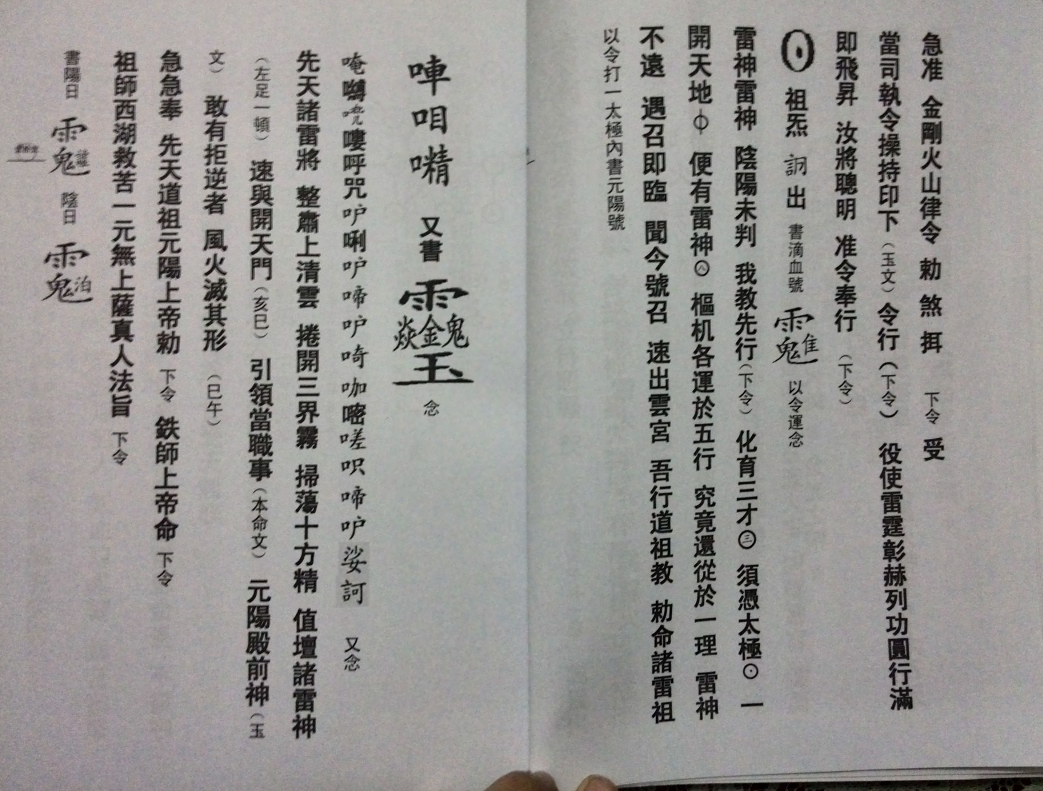 急准　金剛火山律令　勅　煞　挕　下令　受
當司執令操持印下（玉文）令行（下令）　役使雷霆彰赫列功圓行滿
即飛昇　汝將聰明　准令奉行　（下令）
祖炁　出　書滴血號　以令運念
雷神雷神　陰陽未判　我教先行（下令）　化育三才㊂　須憑太極⊙　一
開天地　便有雷神　樞机各運於五行　究竟還從於一理　雷神
不遠　遇召即臨　聞今號召　速出雲宮　吾行道祖教　勅命諸雷祖
以令打一太極內書元陽號
唓　咱　又書　念
唵　嘍呼咒　唎　啼　㖇咖嘧嗟呎啼　娑訶　又念
先天諸雷將　整肅上清雲　捲開三界霧　掃蕩十方精　值壇諸雷神
（左足一頓）　速與開天門（亥巳）　引領當職事（本命文）　元陽殿前神（玉
文）　敢有拒逆者　風火滅其形　（巳午）
急急奉　先天道祖元陽上帝勅　下令　鉄師上帝命　下令
祖師西湖救苦一元無上薩真人法旨　下令
書陽日　陰日